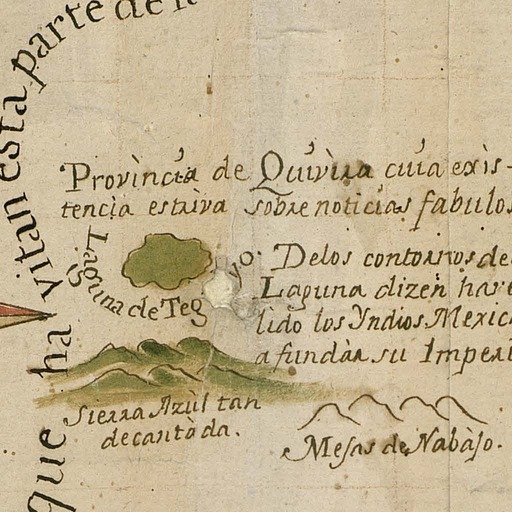 que ha vitan esta parte de l
Provincia de Quivira cuia exis-
tencia estriva sobre noticias fabulos
Laguna de Teg yo.
Delos contornos de
Laguna dizen have
lido los Yndios Mexic
a fundàr su Imperi
Sierra Azùl tan
decantàda.
Mesas de Nabàjo.